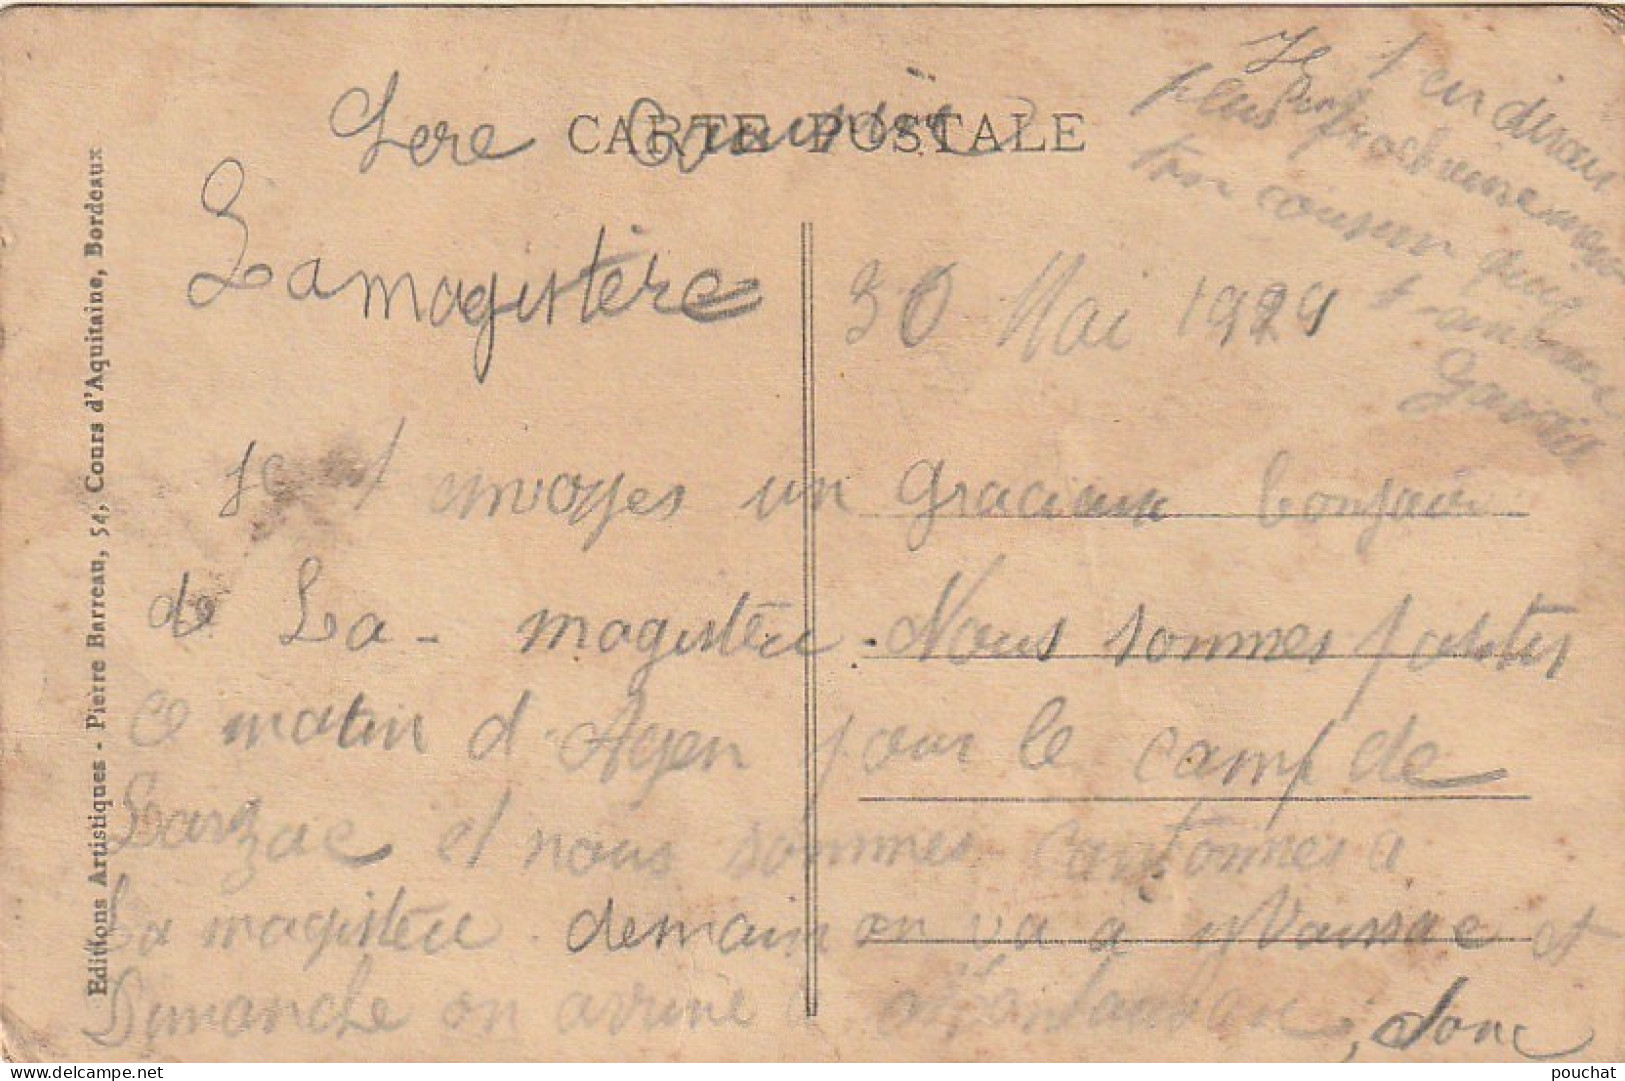 CARTE POSTALE
Lamagistère
30 Mai 1929
je t envoyes un gracieux bonjour
de La-magistère. Nous sommes partis
ce matin d'Agen pour le camp de
Larzac et nous sommes cantonnes a
La magistère demain on va à Moissac et
Dimanche on arrive a Montauban, donc
Je t en dirais
plus prochainement
ton cousin qui
t'embrasse
Editions Artistiques - Pierre Barreau, 54, Cours d'Aquitaine, Bordeaux
pouchat